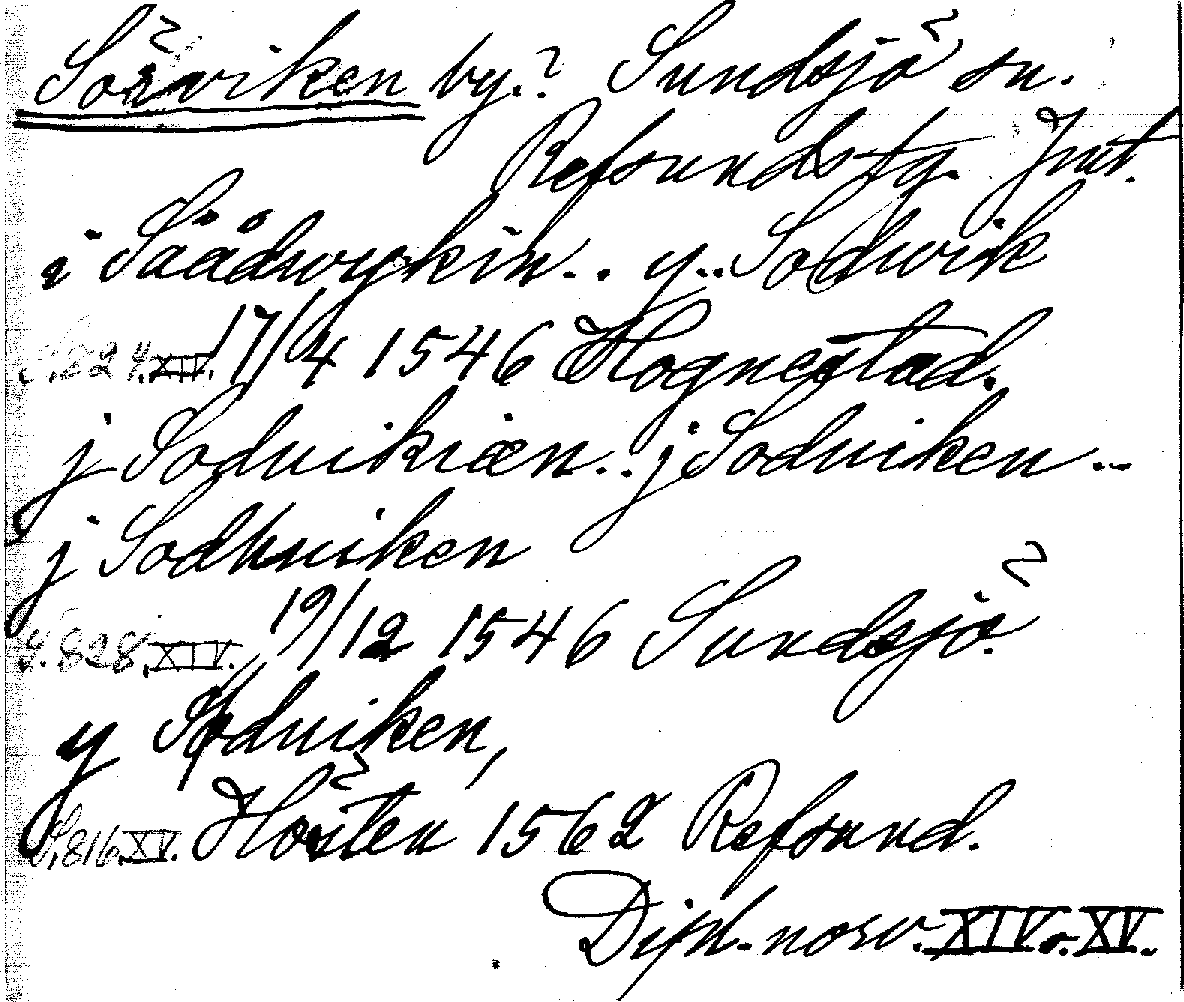 Sörviken by.? Sundsjö sn.
Refsunds tg. Jmt.
i Säådwykin.. y.. Sodwik
S. 824. XIV. 17/4 1546 Hognestad.
j Soduikiæn.. j Soduiken..
j Sodhuiken
S. 828. XIV. 19/12 1546 Sundsjö.
y Söduiken,
S. 816. XV. Hösten 1562 Refsund.
Dipl. norv. XIV o. XV.